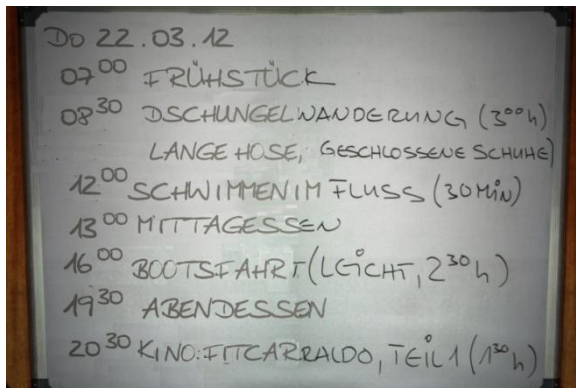 DO 22.03.12
07⁰⁰ FRÜHSTÜCK
08³⁰ DSCHUNGELWANDERUNG (3⁰⁰h)
LANGE HOSE, GESCHLOSSENE SCHUHE)
12⁰⁰ SCHWIMMEN IM FLUSS (30MiN)
13⁰⁰ MITTAGESSEN
16⁰⁰ BOOTSFAHRT (LEiCHT, 2³⁰h)
19³⁰ ABENDESSEN
20³⁰ KINO: FITCARRALDO, TEIL 1 (1³⁰h)